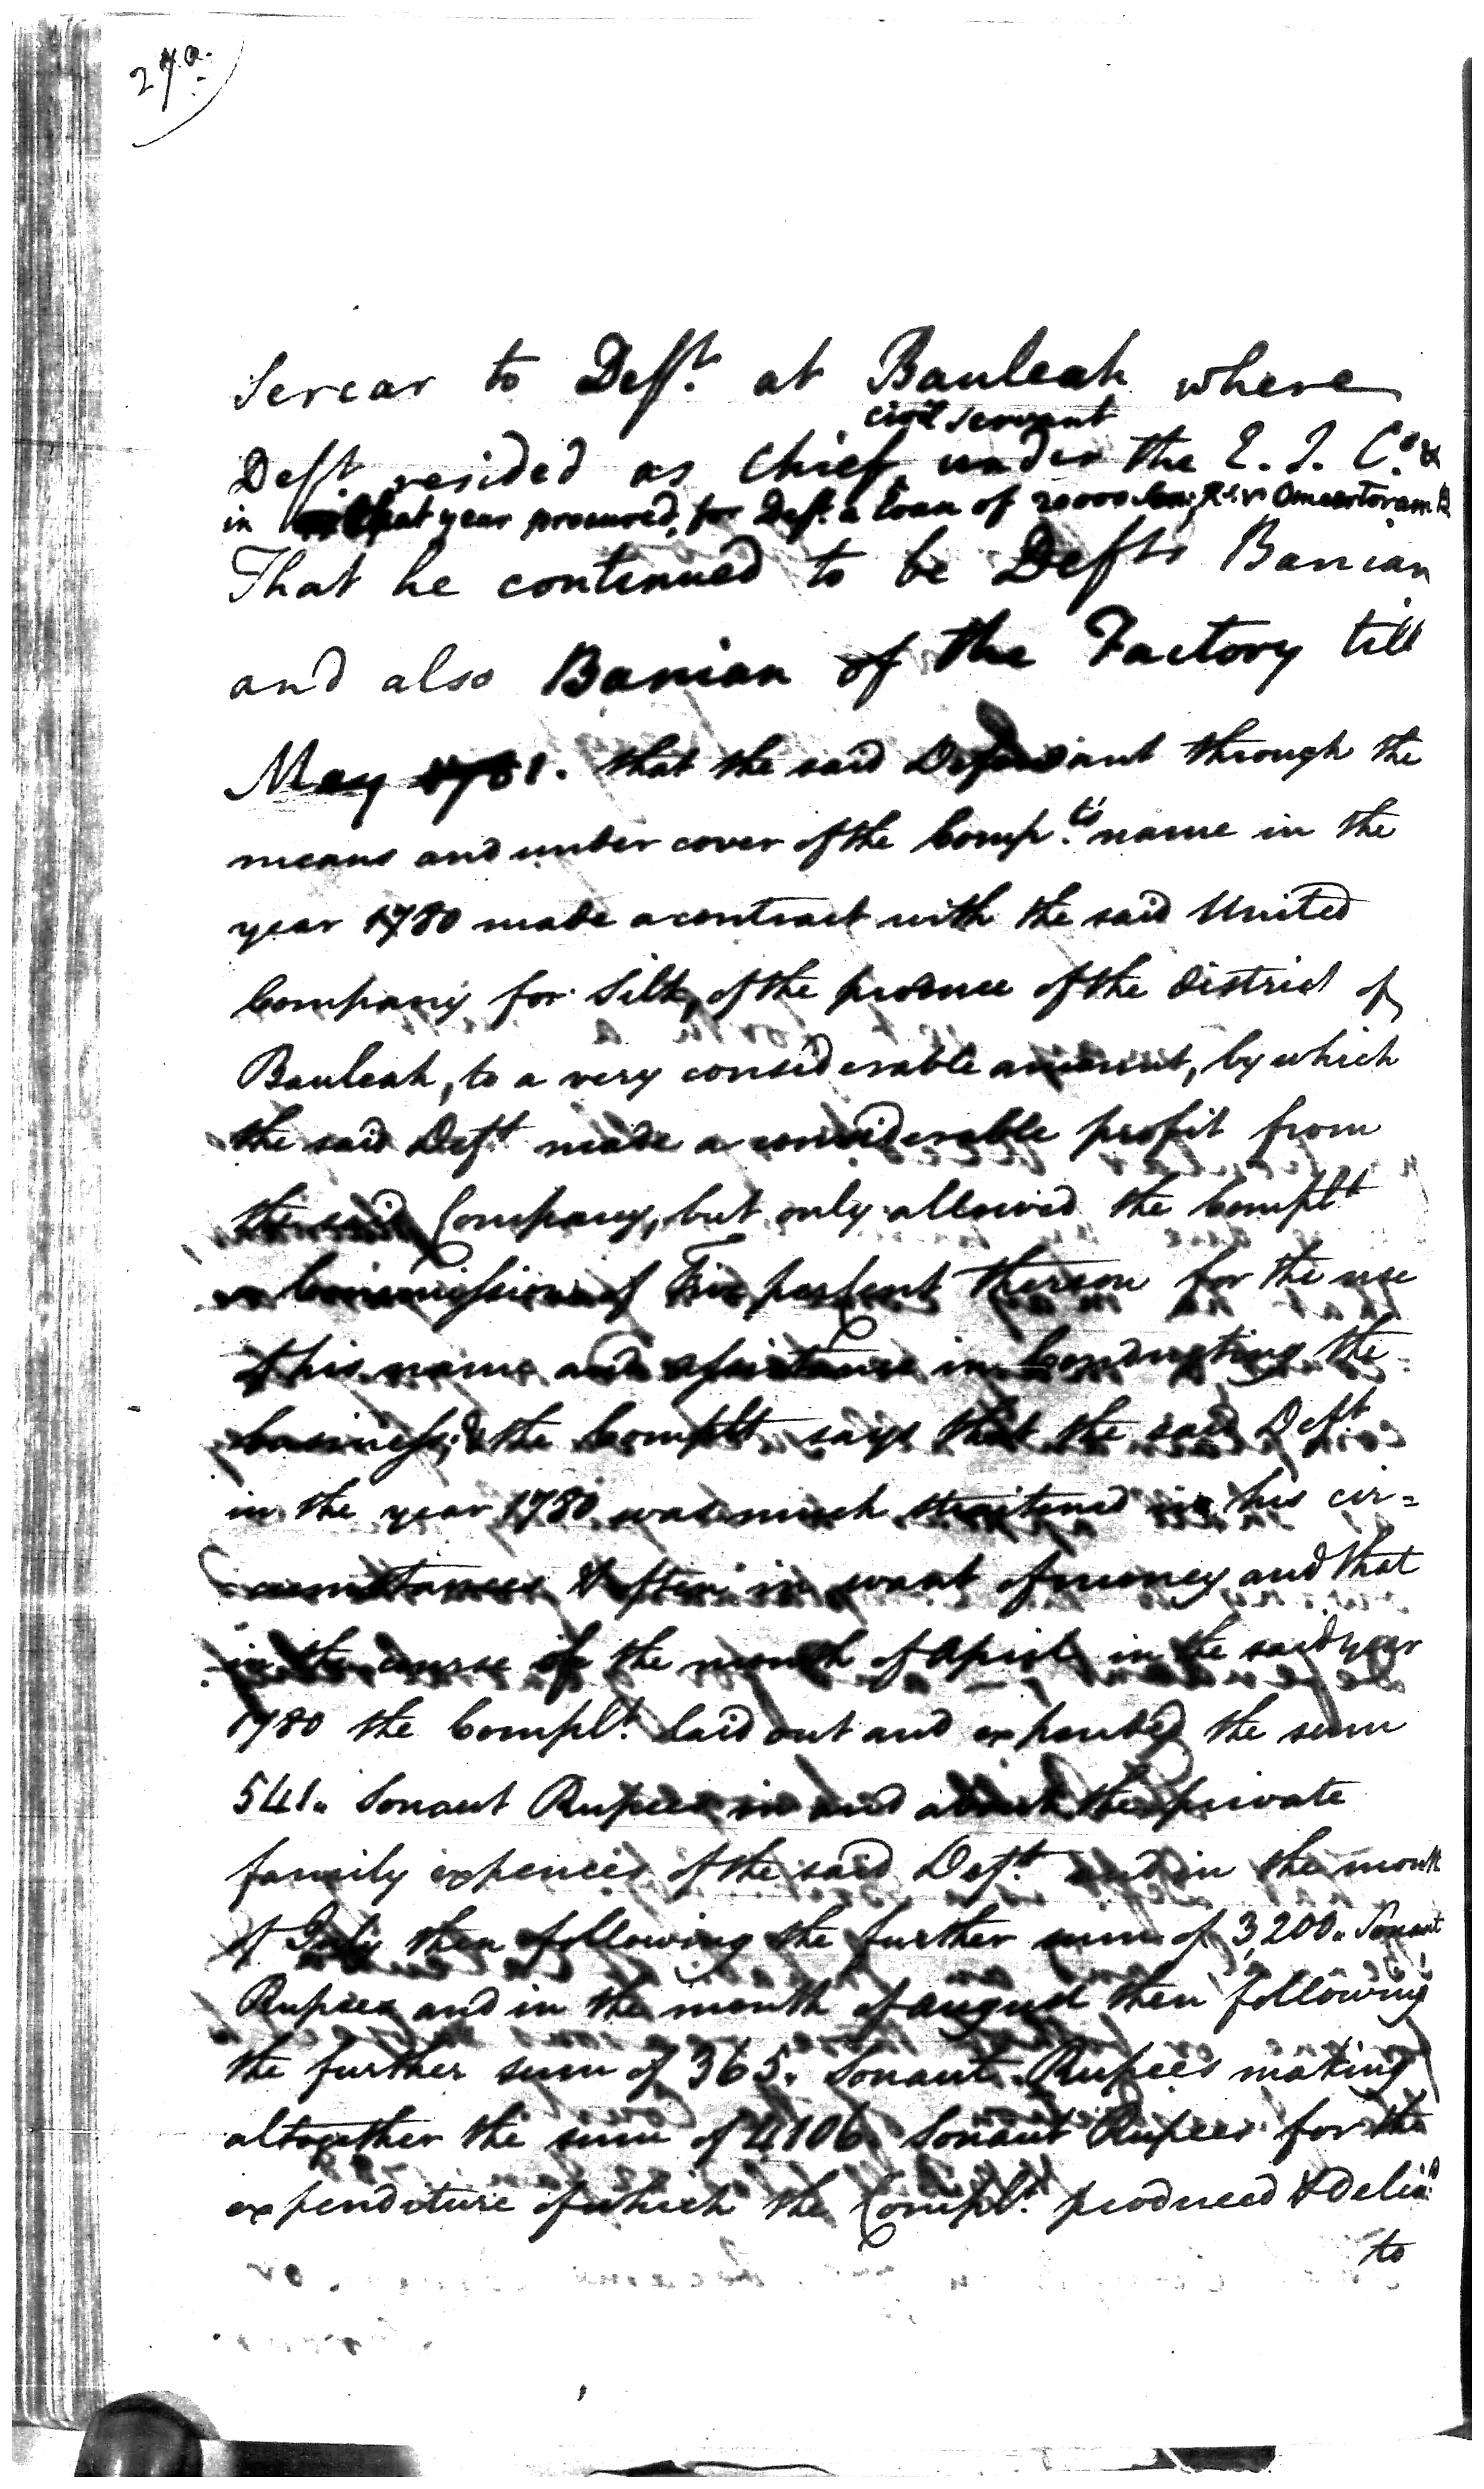 Sercar to Deft. at Bauleah where
civil servant
Deft. resided as Chief under the E. I. Co. &
in that year procured for Deft. a loan of 20000
That he continued to be Defts Banian
and also Banian of the Factory till
May 1781. that the said Defendant through the
means and under cover of the Comp.ts name in the
year 1780 made a contract with the said United
Company for Silk, of the produce of the district of
Bauleah, to a very considerable amount, by which
the said Deft made a considerable profit from
the said Company, but only allowed the Complt
a Commission of Five per Cent thereon for the use
of his name and assistance in Conducting the
business, & the Complt says that the said Deft
in the year 1780 was much streitened in his cir=
cumstances & often in want of money and that
in the course of the month of April in the said year
1780 the Complt. laid out and expended the sum
541. Sonaut Rupees in and about the private
family expences of the said Deft. and in the month
of July then following the further sum of 3,200. Sonaut
Rupees and in the month of august then following
the further sum of 365. Sonaut Rupees making
altogether the sum of 4106. Sonaut Rupees for the
expenditure of which the Complt. produced & deliv.d
to